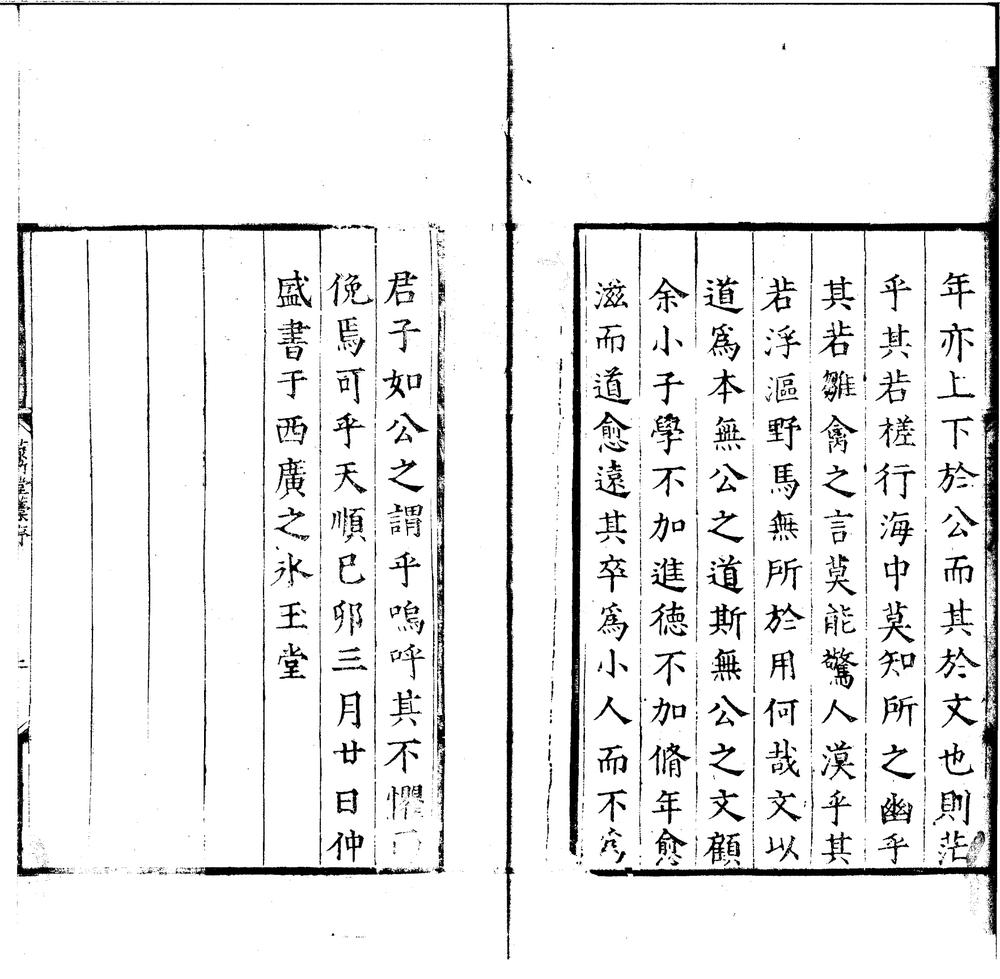 年亦上下於公而其於文也則茫
乎其若槎行海中莫知所之幽乎
其若雛禽之言莫能驚人漠乎其
若浮漚野馬無所於用何哉文以
道爲本無公之道斯無公之文顧
余小子學不加進德不加脩年愈
滋而道愈遠其卒爲小人而不
君子如公之謂乎嗚呼其不懼
俛焉可乎天順巳卯三月廿日仲
盛書于西廣之氷玉堂
堂藁序